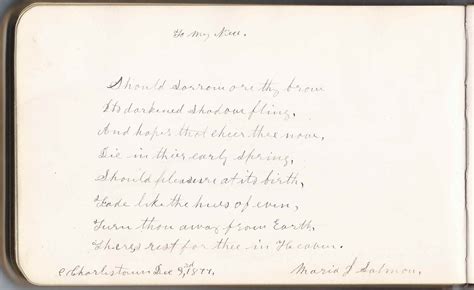 To My Niece.
Should sorrow ore thy brow
Its darkened shadow fling,
And hopes that cheer thee now,
Die in thier early spring,
Should pleasure at its birth,
Fade like the hues of even,
Turn thou away from Earth,
Theres rest for thee in Heaven.
Charlestown Dec 1877.
Maria J Salmon.